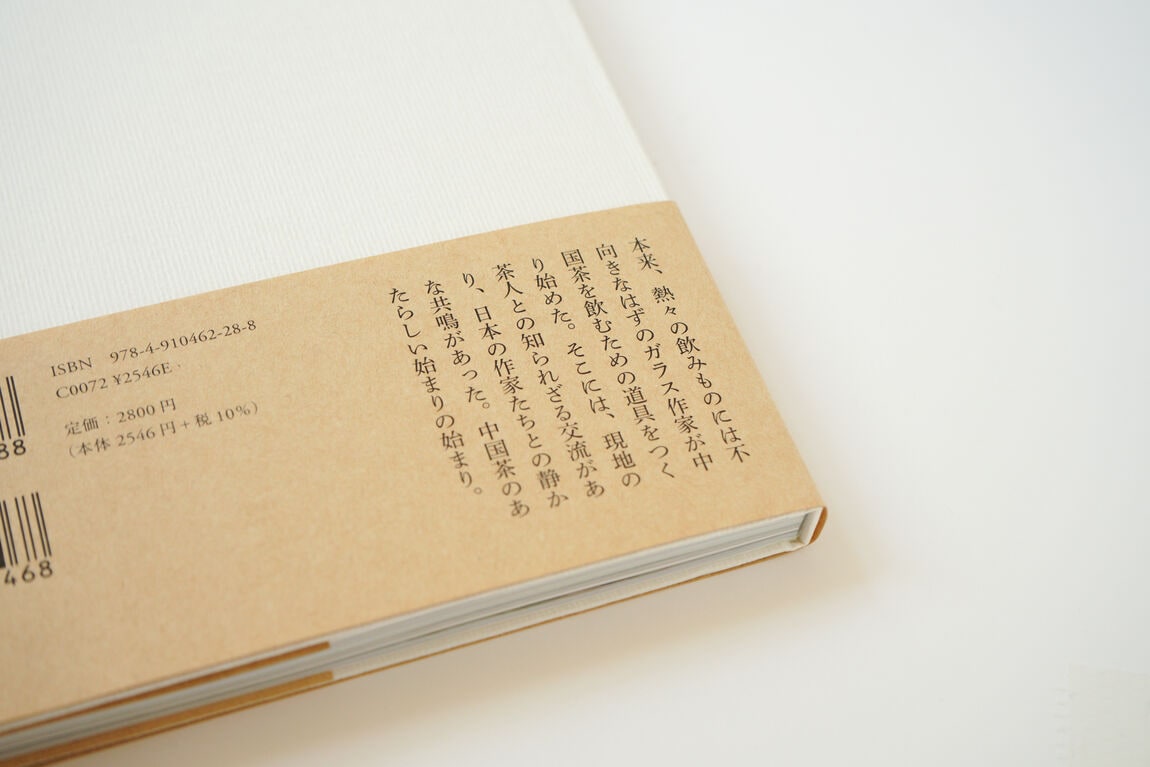 本来、熱々の飲みものには不
向きなはずのガラス作家が中
国茶を飲むための道具をつく
り始めた。そこには、現地の
茶人との知られざる交流があ
り、日本の作家たちとの静か
な共鳴があった。中国茶のあ
たらしい始まりの始まり。
ISBN 978-4-910462-28-8
C0072 ¥2546E
定価：2800円
（本体 2546 円＋税 10%）
88
468